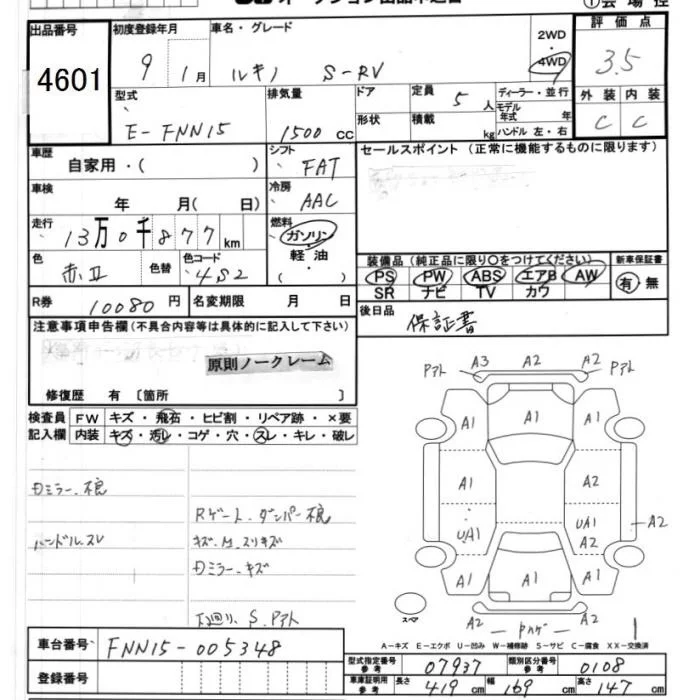 出品番号 初度登録年月 車名・グレード 2WD ・ 4WD 評価点
4601 9 1月 ルキノ S-RV 3.5
型式 排気量 ドア 定員 5人 ディーラー・並行 外装 内装
E-FNN15 1500cc 形状 積載 kg モデル年式 年 ハンドル 左・右 C C
車歴 自家用・( ) シフト FAT セールスポイント (正常に機能するものに限ります)
車検 年 月( 日) 冷房 AAC
走行 13万0千877km 燃料 ガソリン・軽油・( )
色 赤II 色替 色コード 4S2
装備品(純正品に限り○をつけてください) 新車保証書
PS PW ABS エアB AW 有・無
SR ナビ TV カワ
R券 10080円 名変期限 月 日 後日品 保証書
注意事項申告欄(不具合内容等は具体的に記入して下さい)
原則ノークレーム
修復歴 有〔箇所 〕
検査員 FW キズ・飛石・ヒビ割・リペア跡・×要
記入欄 内装 キズ・汚レ・コゲ・穴・スレ・キレ・破レ
Dミラー.不良
Rゲート.ダンパー不良
ハンドル.スレ キズ.M.スリキズ
Dミラー.キズ
下廻り.S.アト
Pアト A3 A2 A2 Pアト
A1 A1 A1
A1
A2 A2
UA1 UA1 A2
A2
A1 A1 A1
スペア A2 Pハゲ A2
A-キズ E-エクボ U-凹み W-補修跡 S-サビ C-腐食 XX-交換済
車台番号 FNN15-005348
登録番号
型式指定番号参考 07937 類別区分番号参考 0108
車庫証明用参考 長さ 419cm 幅 169cm 高さ 147cm